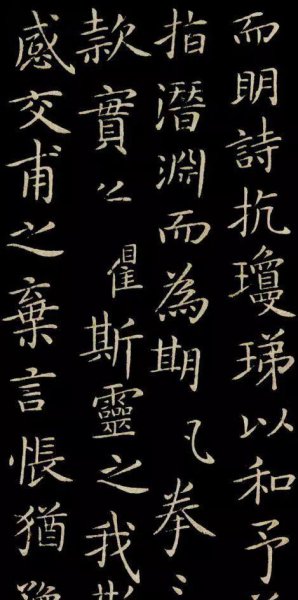 而明詩抗瓊珶以和予
指潛淵而為期拳
款實兮瞿斯靈之我
感交甫之棄言悵猶